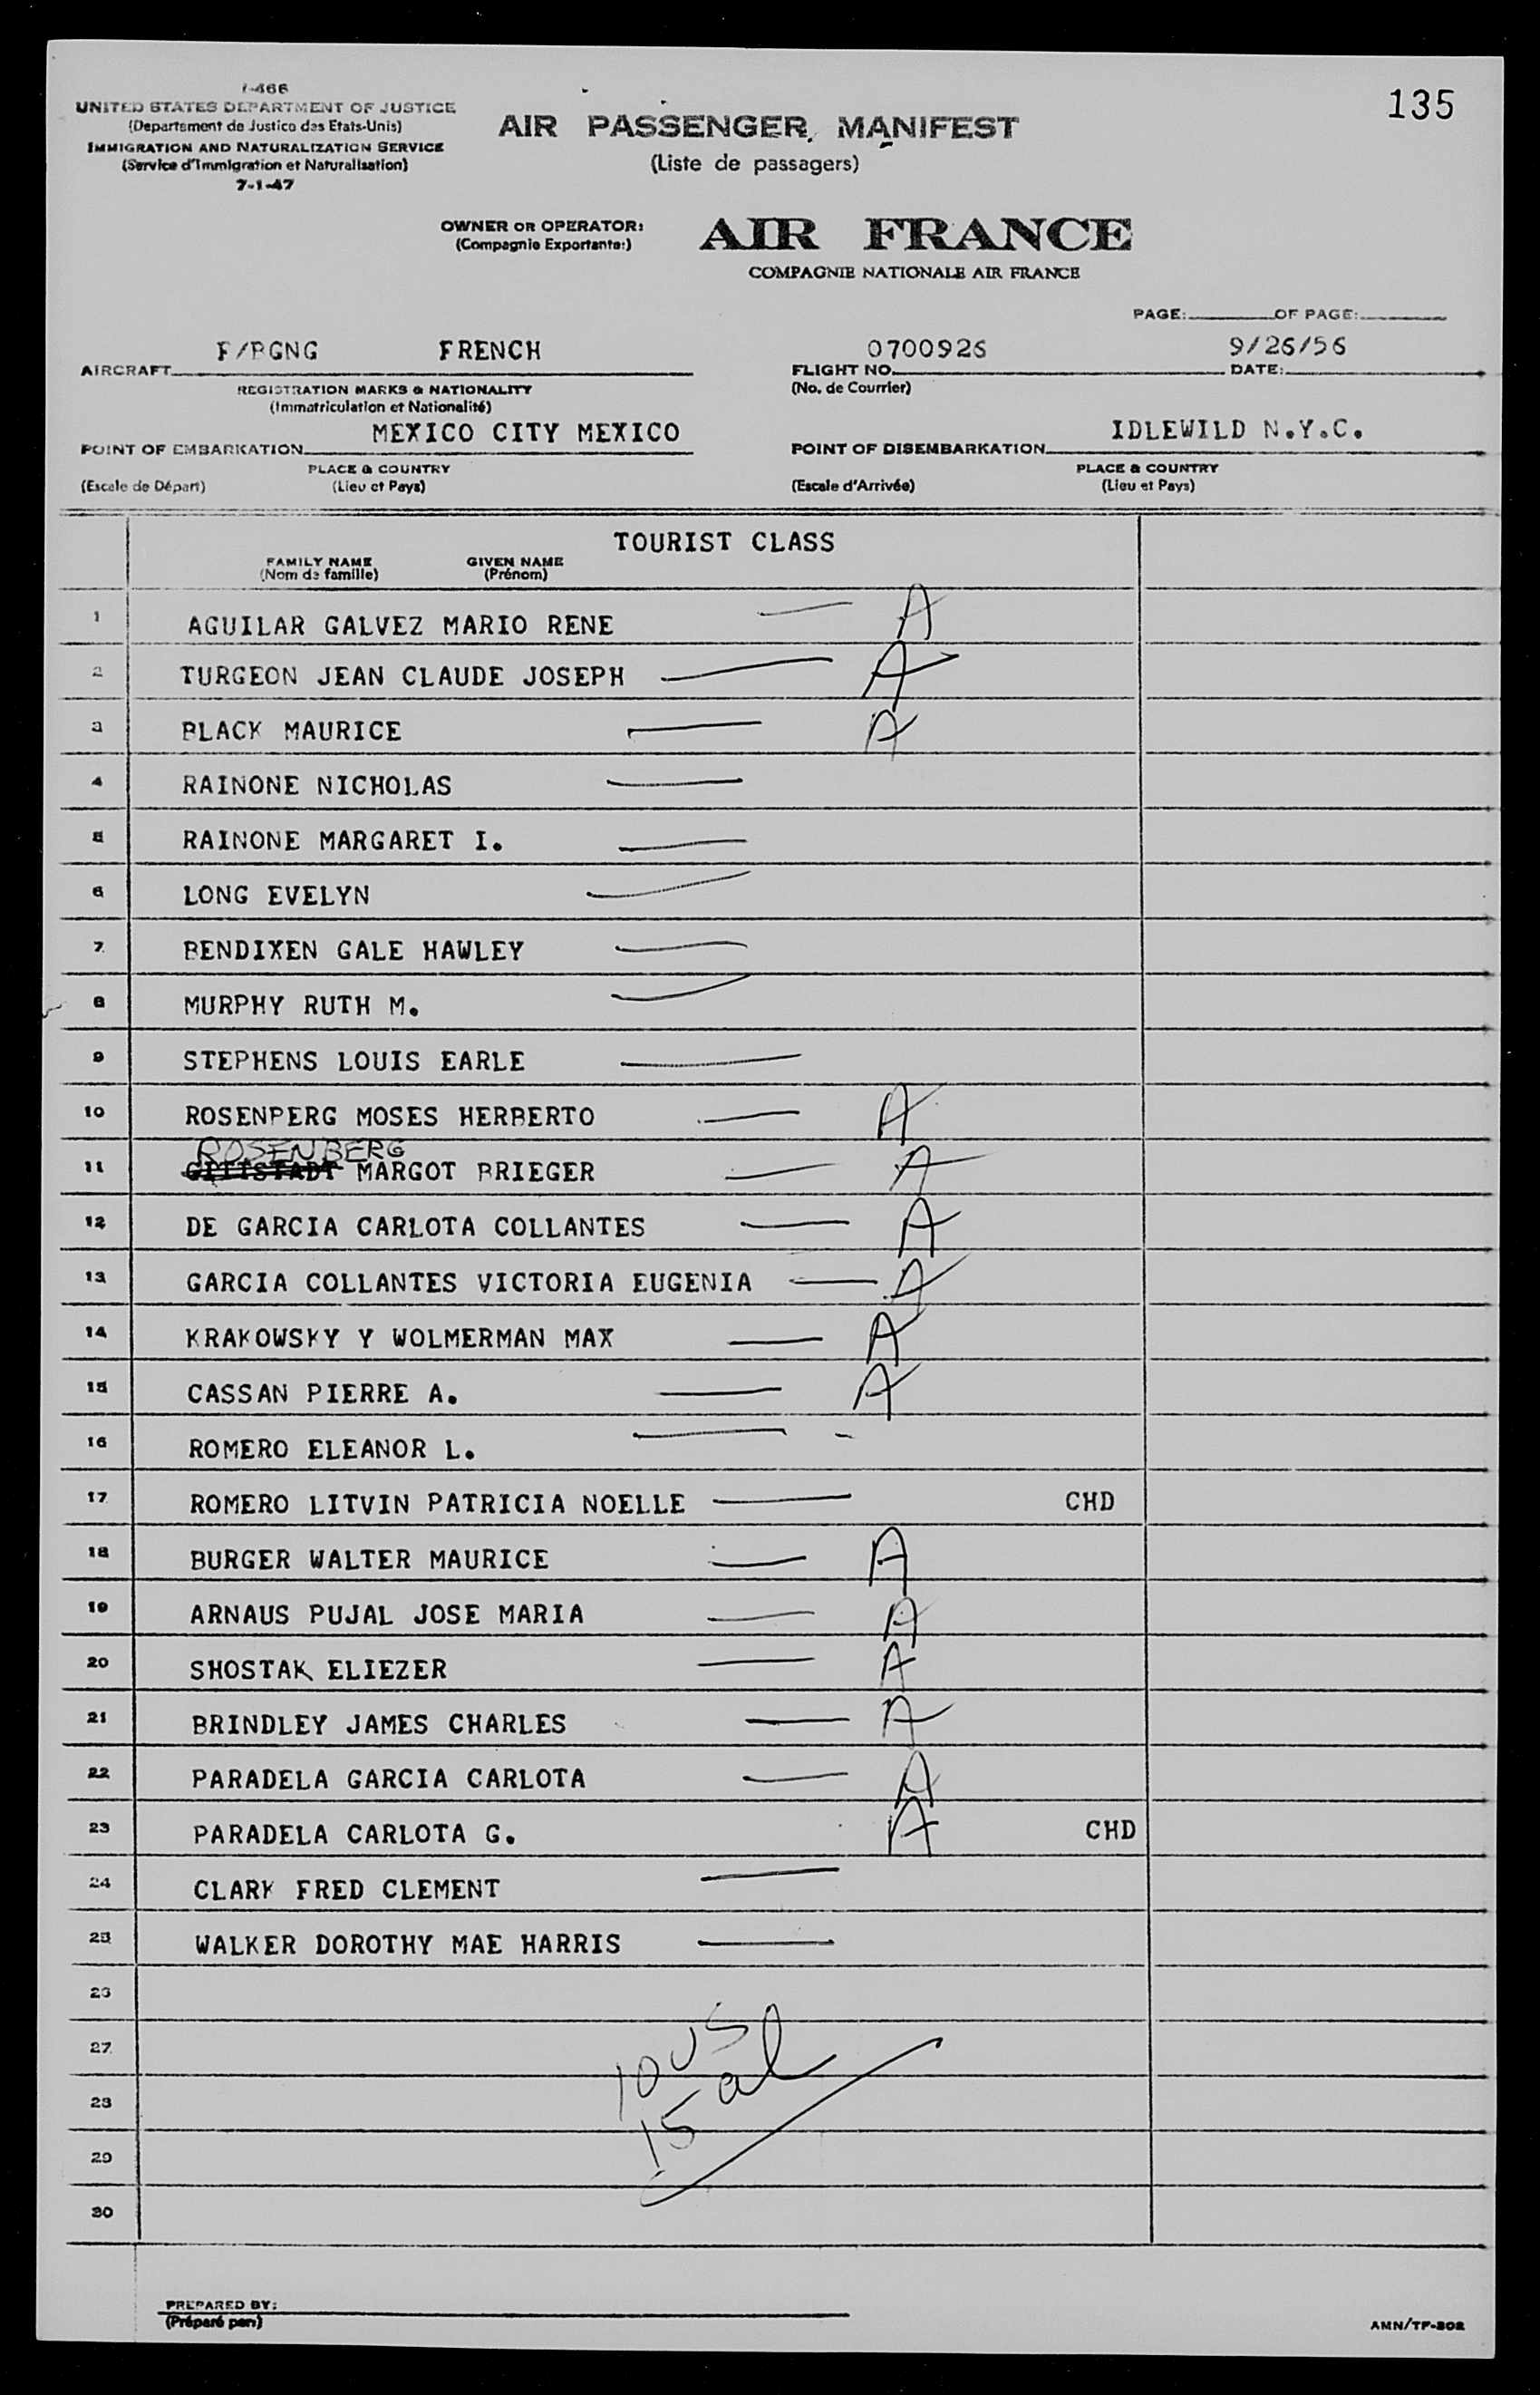 135
I-466
UNITED STATES DEPARTMENT OF JUSTICE
(Departement de Justice des Etats-Unis)
IMMIGRATION AND NATURALIZATION SERVICE
(Service d'Immigration et Naturalisation)
7-1-47
AIR PASSENGER MANIFEST
(Liste de passagers)
OWNER OR OPERATOR:
(Compagnie Exportante:)
AIR FRANCE
COMPAGNIE NATIONALE AIR FRANCE
PAGE: OF PAGE:
AIRCRAFT F/BGNG FRENCH
REGISTRATION MARKS & NATIONALITY
(Immatriculation et Nationalité)
FLIGHT NO. 0700926 DATE: 9/26/56
(No. de Courrier)
POINT OF EMBARKATION MEXICO CITY MEXICO
PLACE & COUNTRY
(Escale de Départ) (Lieu et Pays)
POINT OF DISEMBARKATION IDLEWILD N.Y.C.
PLACE & COUNTRY
(Escale d'Arrivée) (Lieu et Pays)
TOURIST CLASS
FAMILY NAME GIVEN NAME
(Nom de famille) (Prénom)
1 AGUILAR GALVEZ MARIO RENE — A
2 TURGEON JEAN CLAUDE JOSEPH — A
3 BLACK MAURICE — A
4 RAINONE NICHOLAS —
5 RAINONE MARGARET I. —
6 LONG EVELYN —
7 BENDIXEN GALE HAWLEY —
8 MURPHY RUTH M. —
9 STEPHENS LOUIS EARLE —
10 ROSENBERG MOSES HERBERTO — A
ROSENBERG
11 MARGOT BRIEGER — A
12 DE GARCIA CARLOTA COLLANTES — A
13 GARCIA COLLANTES VICTORIA EUGENIA — A
14 KRAKOWSKY Y WOLMERMAN MAX — A
15 CASSAN PIERRE A. — A
16 ROMERO ELEANOR L. — -
17 ROMERO LITVIN PATRICIA NOELLE — CHD
18 BURGER WALTER MAURICE — A
19 ARNAUS PUJAL JOSE MARIA — A
20 SHOSTAK ELIEZER — A
21 BRINDLEY JAMES CHARLES — A
22 PARADELA GARCIA CARLOTA — A
23 PARADELA CARLOTA G. A CHD
24 CLARK FRED CLEMENT —
25 WALKER DOROTHY MAE HARRIS —
26
27
28
29
30
10 US
15 al
PREPARED BY:
(Préparé par:)
AMN/TF-302